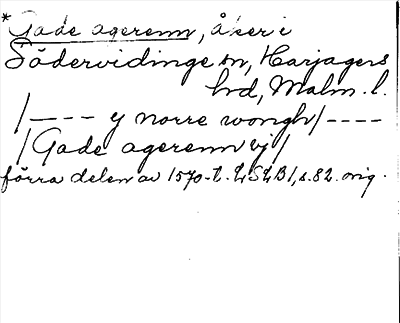 * Gade agerenn, åker i
Södervidinge sn, Harjagers
hd, Malm. l.
/---- y norre wongh/----
/Gade agerenn vj/
förra delen av 1570-t. LSLB1, s. 82. orig.